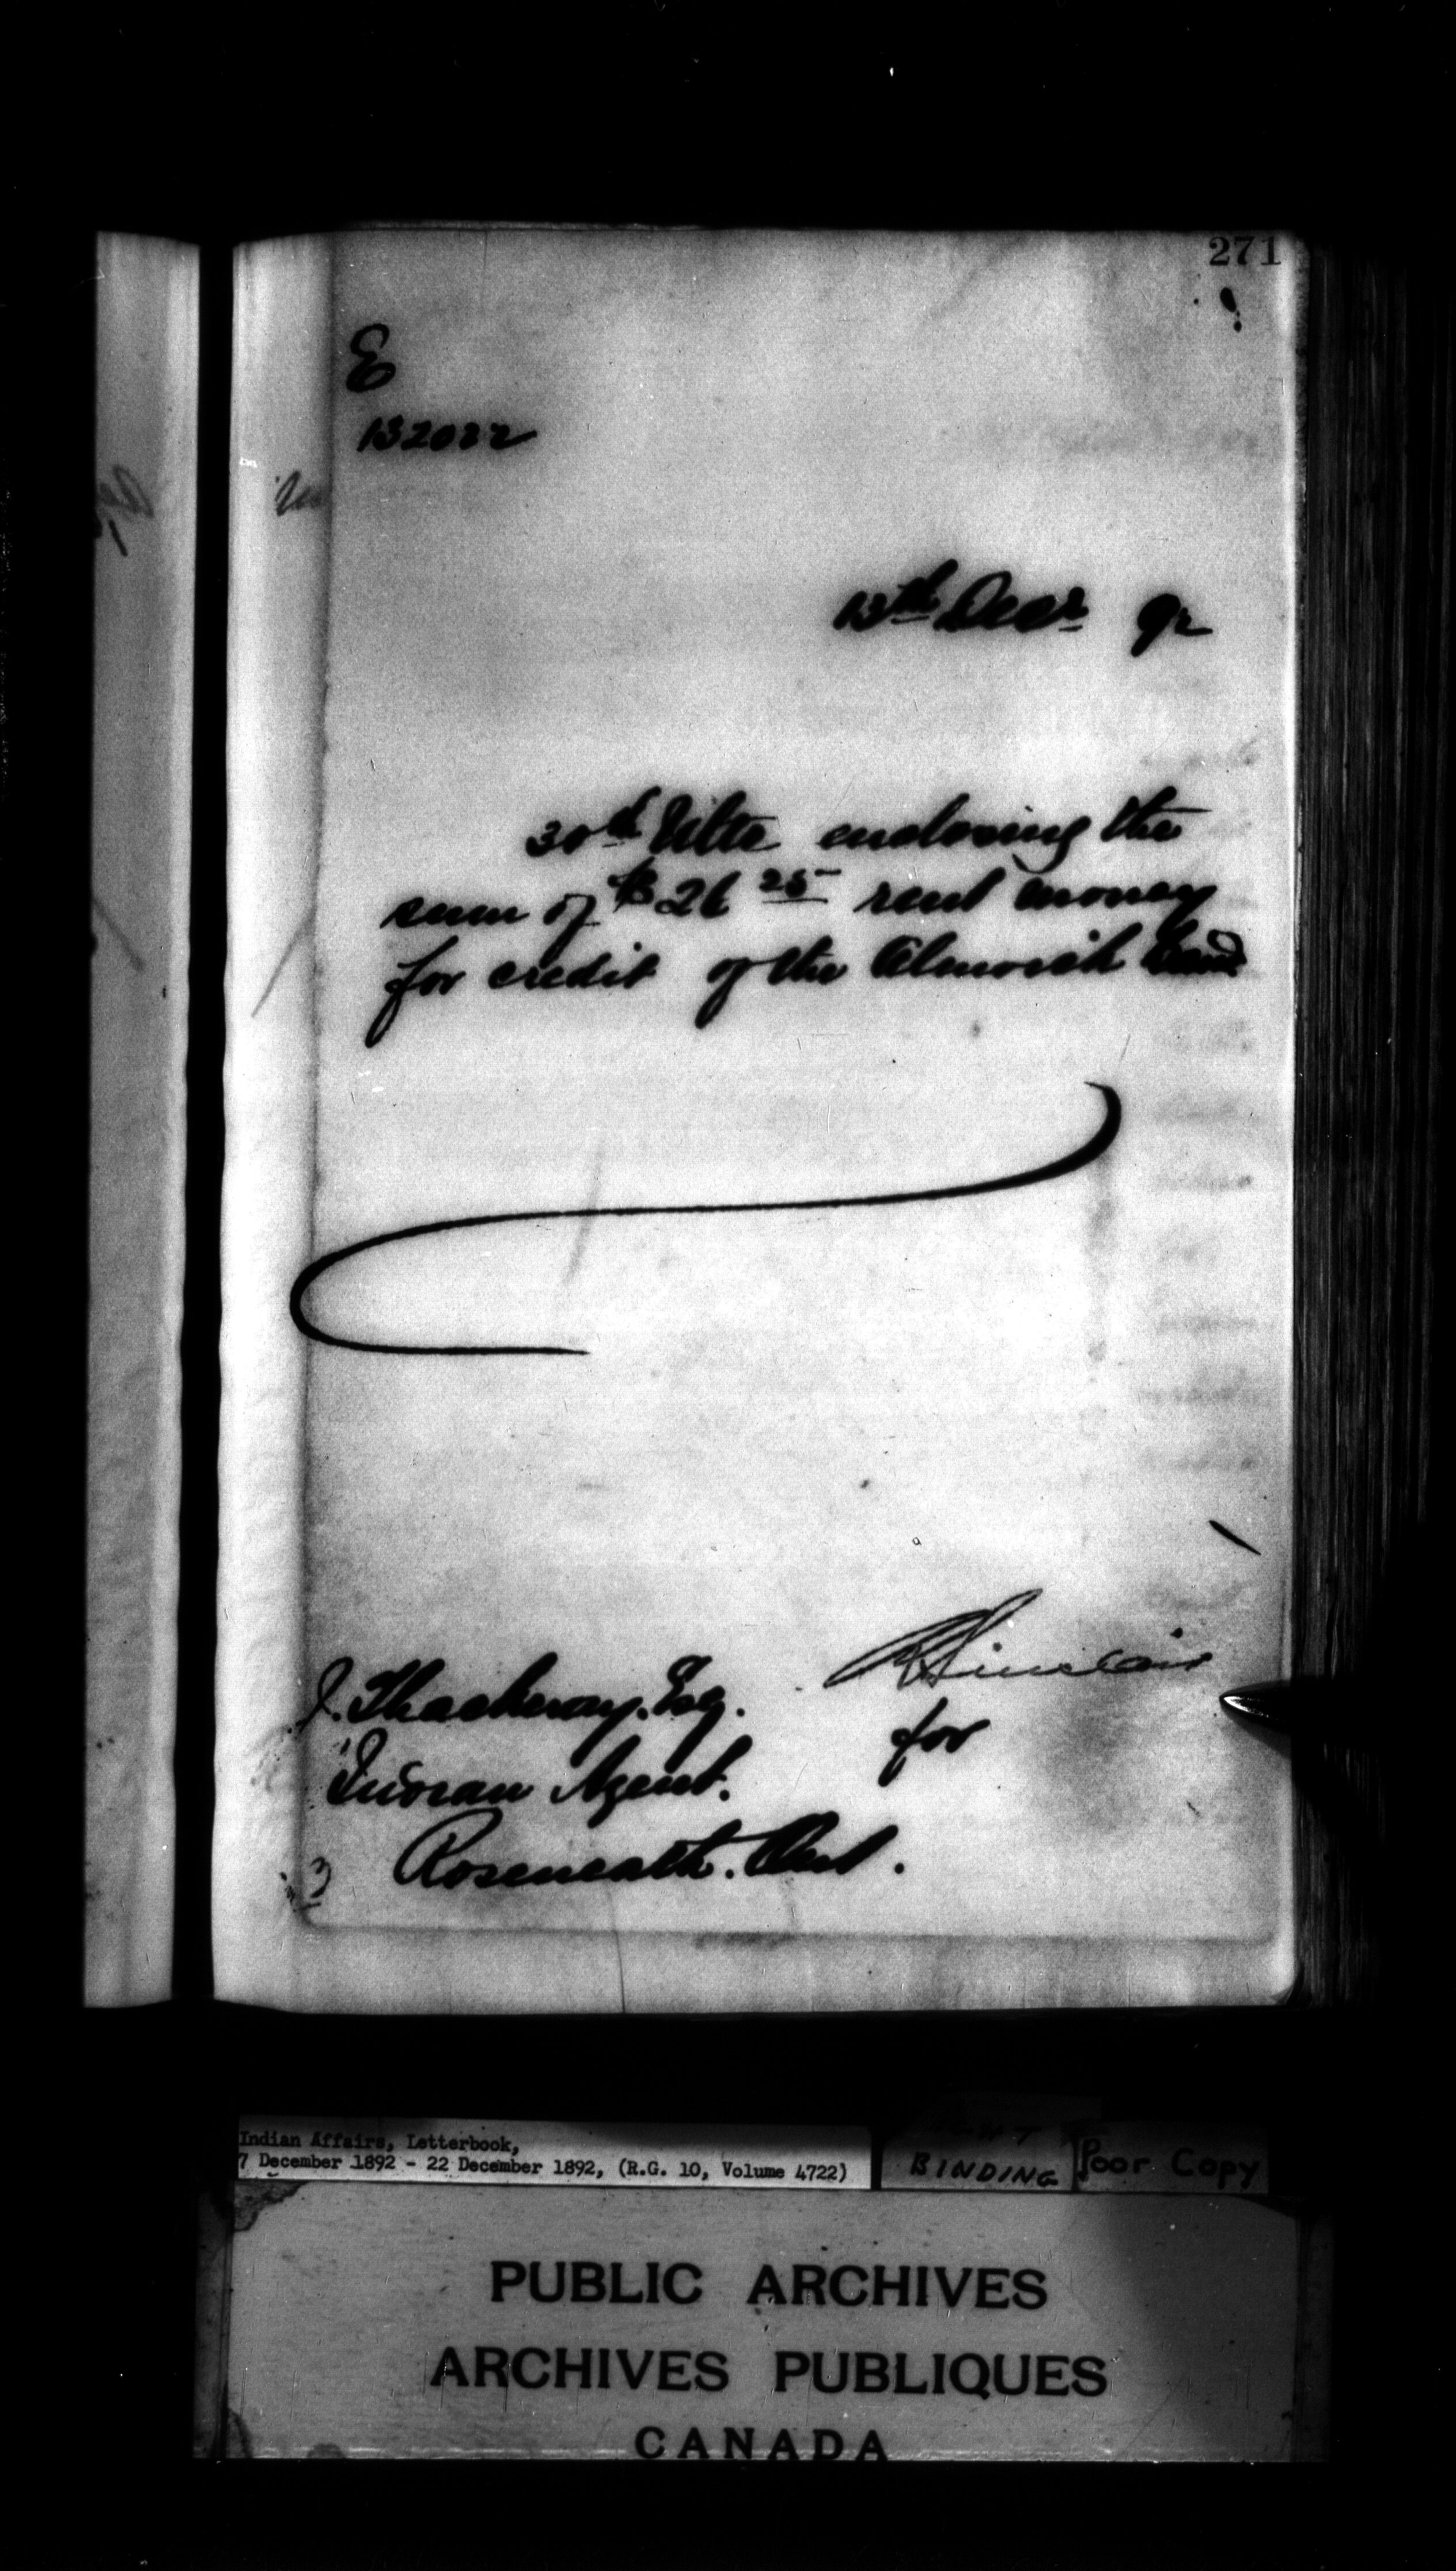 271
E
132022
13th Decr 92
30th Ulto enclosing the
sum of $26 25 rent money
for credit of the Alnwick Band
R Sinclair
J. Thackeray. Esq.
for
Indian Agent.
Roseneath. Ont.
Indian Affairs, Letterbook,
7 December 1892 - 22 December 1892, (R.G. 10, Volume 4722)
BINDING
Poor Copy
PUBLIC ARCHIVES
ARCHIVES PUBLIQUES
CANADA